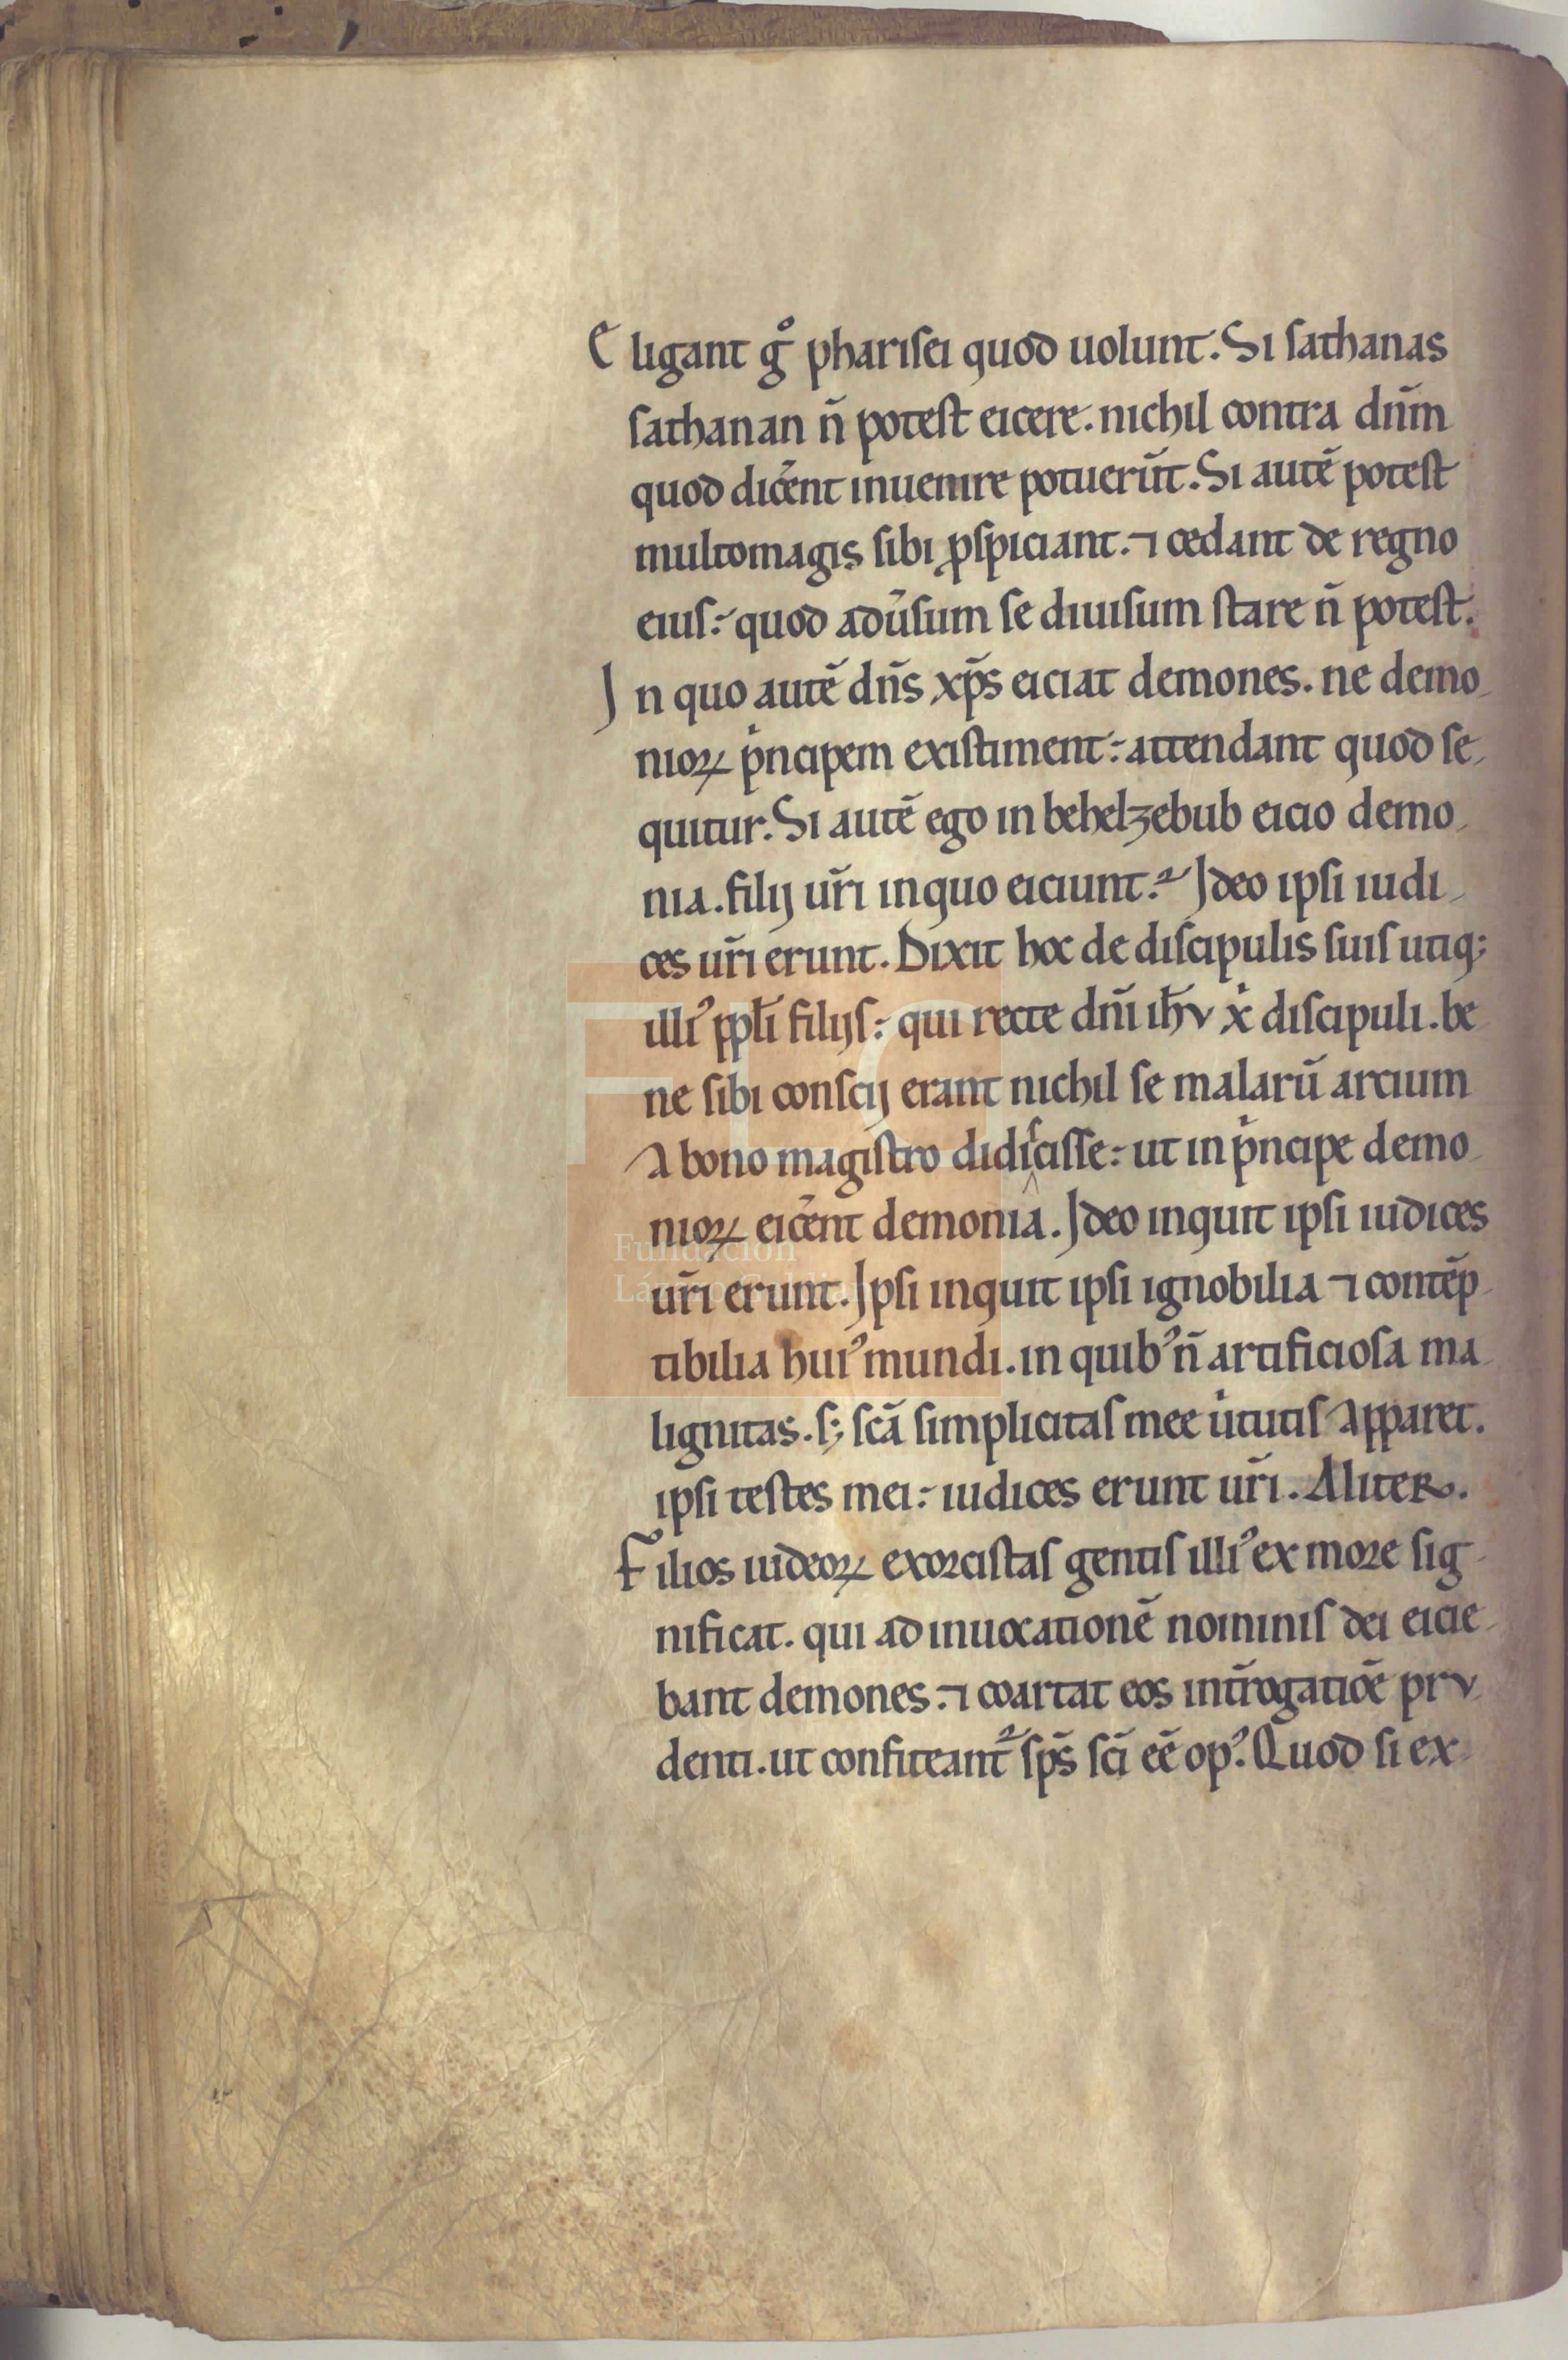 Eligant gͦ pharisei quod uolunt. Si sathanas
sathanan n̄ potest eicere. nichil contra dn̄m
quod dic̄ent inuenire potuerūt. Si autē potest
multomagis sibi ꝓspiciant. ⁊ cedant de regno
eius: quod adūsum se diuisum stare n̄ potest.
In quo autē dn̄s xp̄s eiciat demones. ne demo
nioꝝ pͥncipem existiment: attendant quod se
quitur. Si autē ego in behelzebub eicio demo
nia. filij ur̄i in quo eiciunt? Ideo ipsi iudi
ces ur̄i erunt. Dixit hoc de discipulis suis utiq;
illiꝰ ppl̄i filijs: qui recte dn̄i ih̄v xͥ discipuli. be
ne sibi conscij erant nichil se malarū artium
a bono magistro didicisse: ut in pͥncipe demo
nioꝝ eic̄ent demonia. Ideo inquit ipsi iudices
ur̄i erunt. Ipsi inquit ipsi ignobilia ⁊ contēp
tibilia huiꝰ mundi. in quibꝰ n̄ artificiosa ma
lignitas. s; sc̄a simplicitas mee uͥtutis apparet.
ipsi testes mei: iudices erunt ur̄i. Aliter.
Filios iudeoꝝ exorcistas gentis illiꝰ ex more sig
nificat. qui ad inuocationē nominis dei eicie
bant demones: ⁊ coartat eos int̄rogatiōe prv
denti. ut confiteant᷑ sp̄s sc̄i eē opꝰ. Quod si ex
Fundación